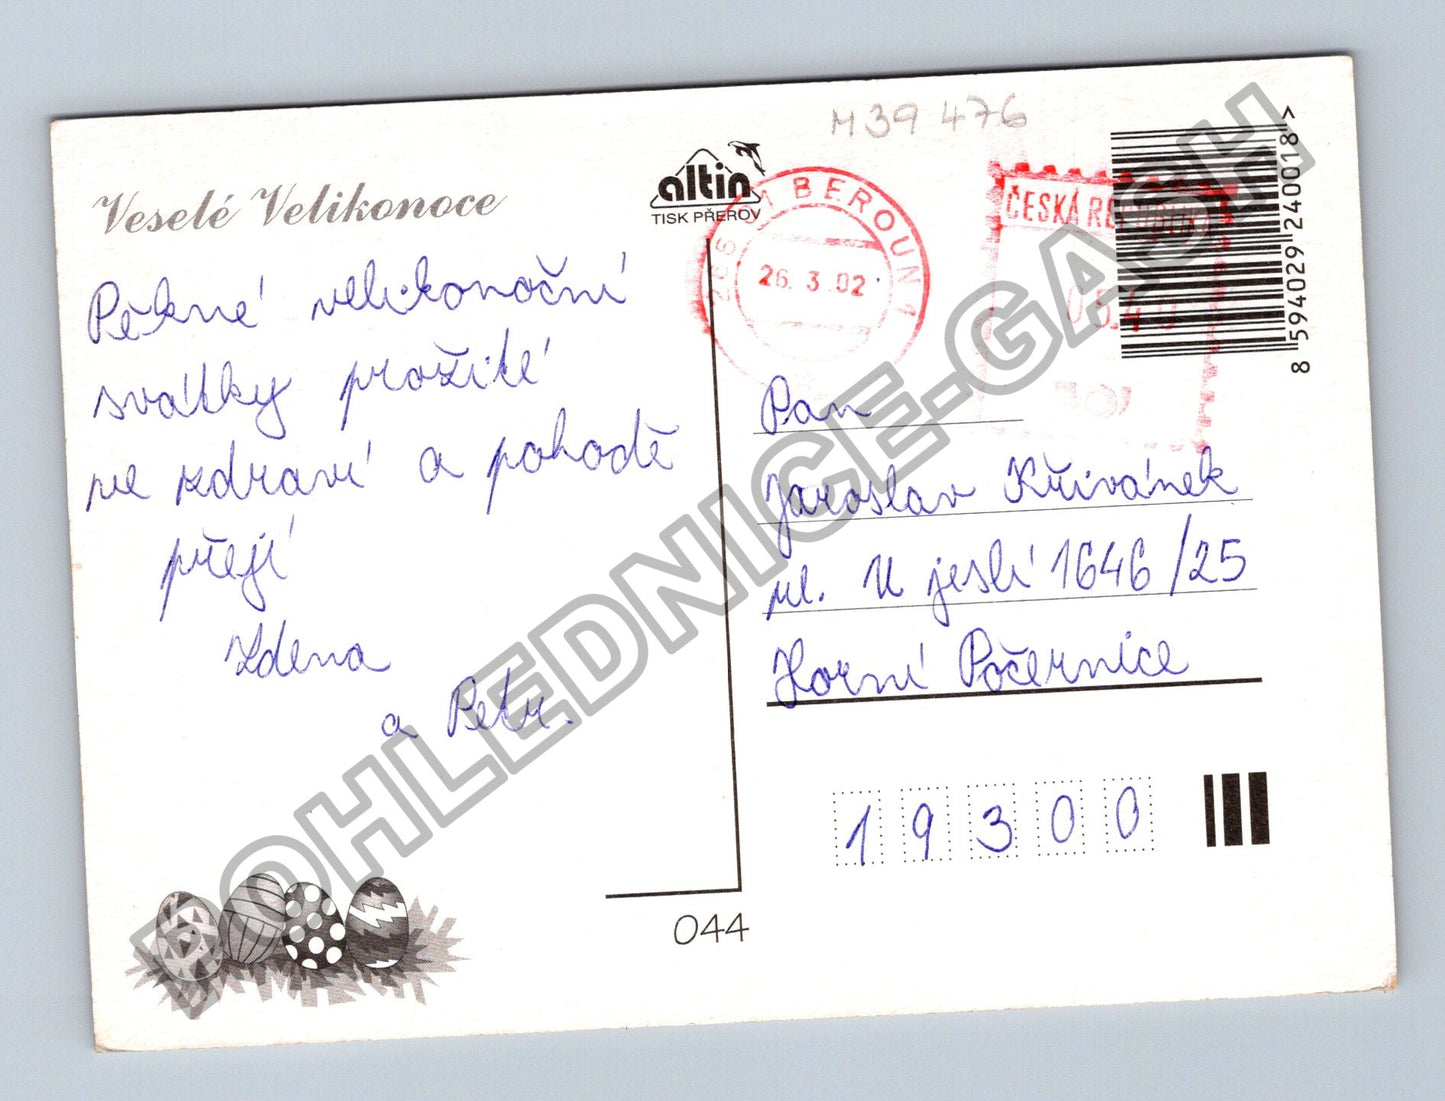 M39 476
altin
TISK PŘEROV
266 01 BEROUN 1
26. 3. 02
ČESKÁ REPUBLIKA
03.40
8 594029 240018 >
Veselé Velikonoce
Pěkné velikonoční
svátky prožité
ve zdraví a pohodě
přejí
Zdena
a Petr.
Pan
Jaroslav Křivánek
ul. U jeslí 1646/25
Horní Počernice
19300
044
POHLEDNICE-GASH